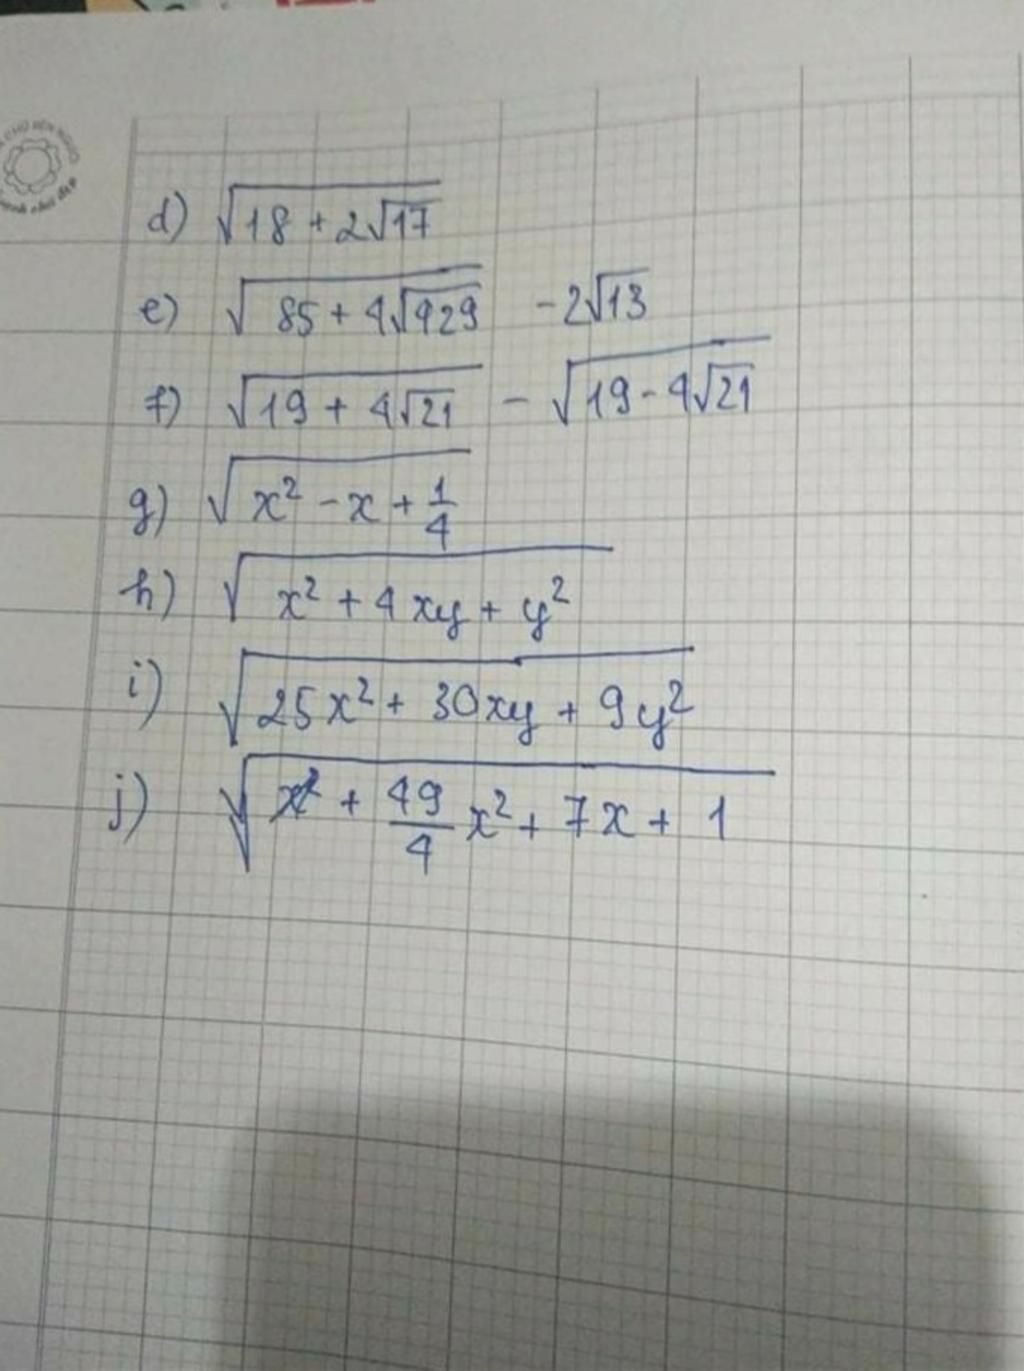 d) √(18 + 2√17)
e) √(85 + 4√429) - 2√13
f) √(19 + 4√21) - √(19 - 4√21)
g) √(x² - x + 1/4)
h) √(x² + 4xy + y²)
i) √(25x² + 30xy + 9y²)
j) √(49/4 x² + 7x + 1)